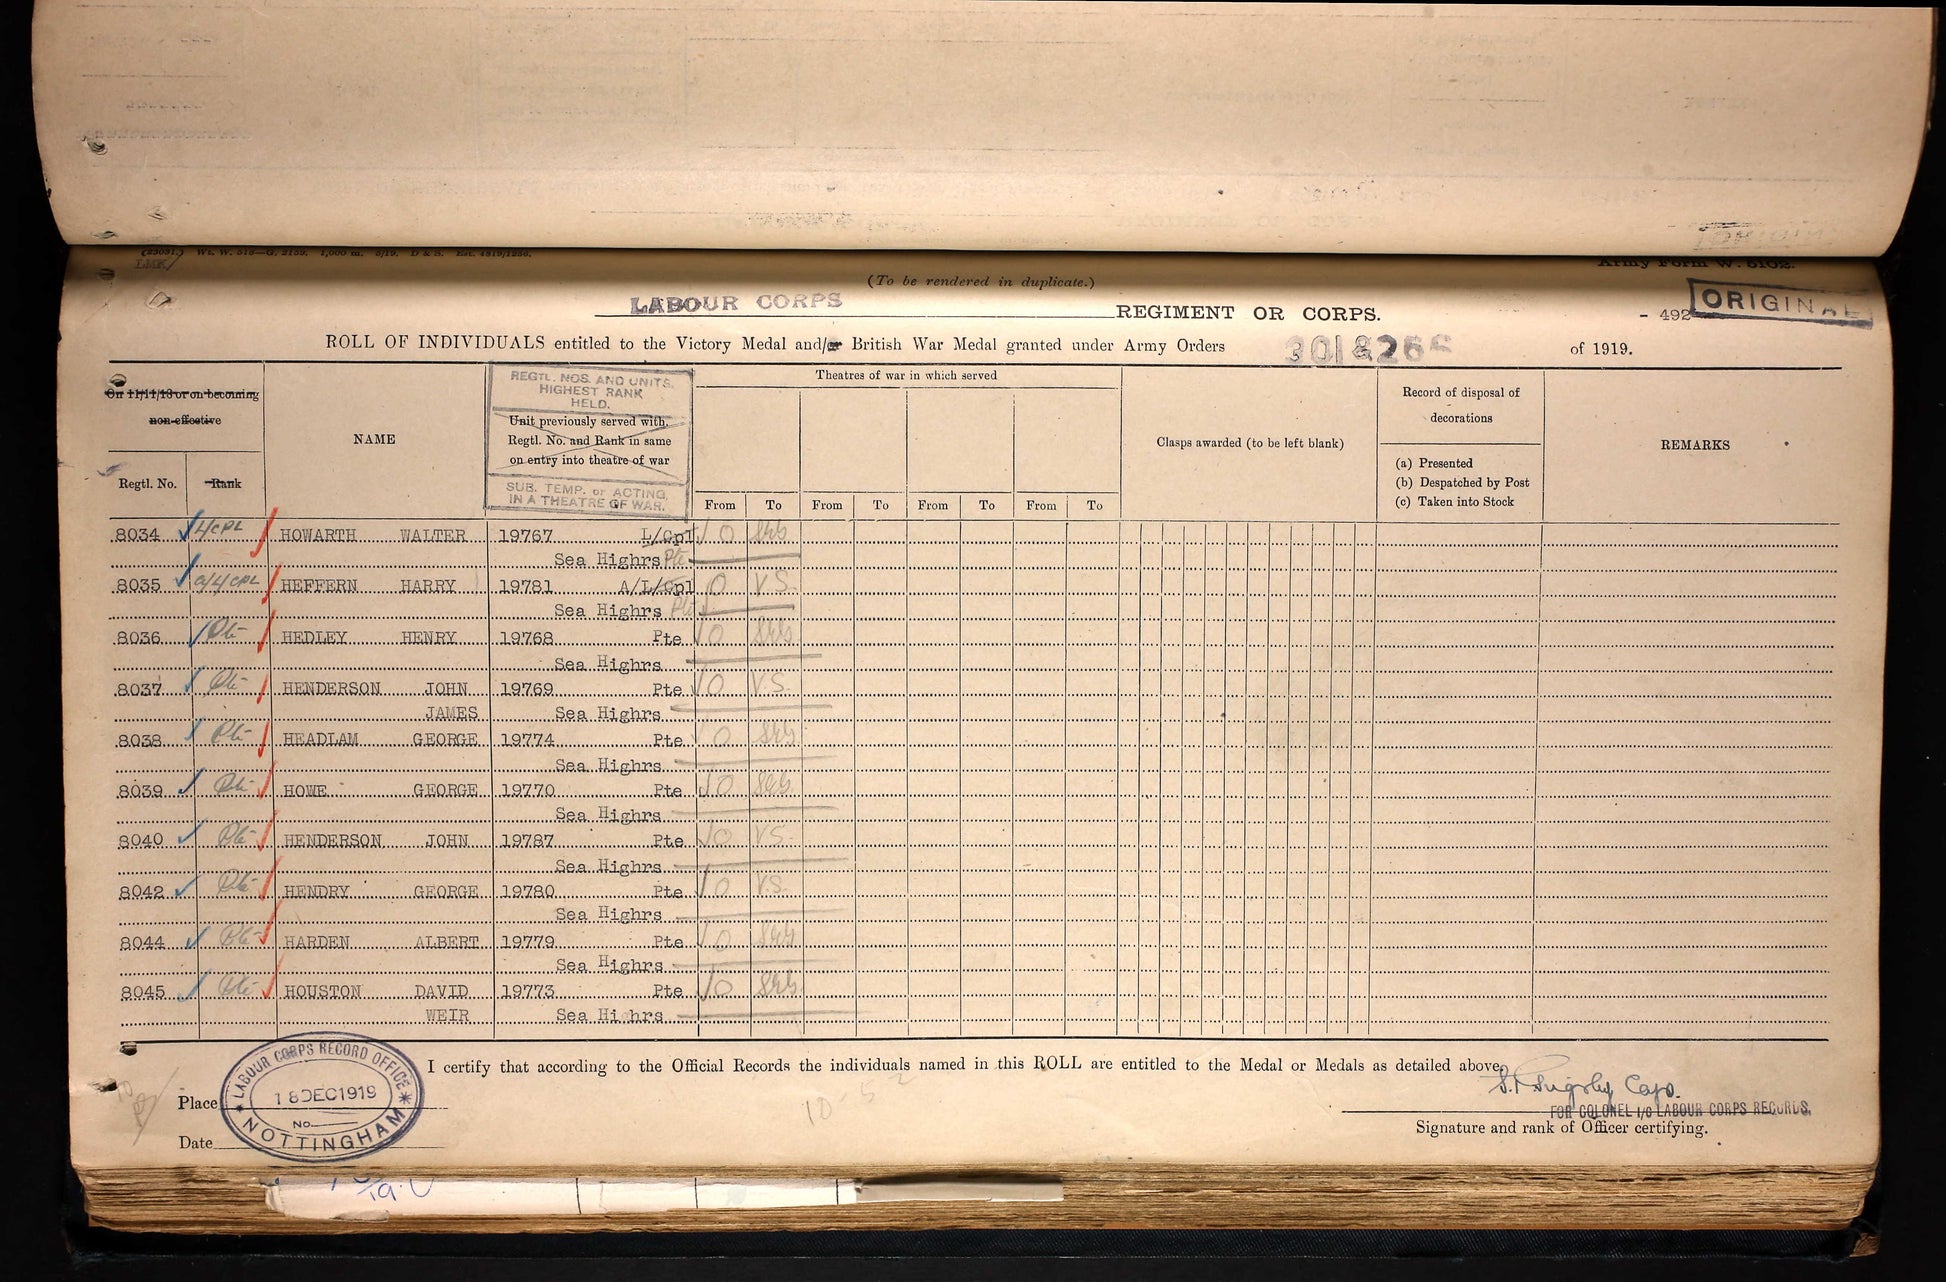 (23031.) Wt. W. 518—G. 2159. 1,000 m. 5/19. D & S. Est. 4819/1256.
LMK/
Army Form W. 5102.
(To be rendered in duplicate.)
LABOUR CORPS REGIMENT OR CORPS.
- 492
ORIGINAL
ROLL OF INDIVIDUALS entitled to the Victory Medal and/or British War Medal granted under Army Orders 301 & 266 of 1919.
On 11/11/18 or on becoming
non-effective
Regtl. No.
Rank
NAME
REGTL. NOS. AND UNITS.
HIGHEST RANK
HELD.
Unit previously served with.
Regtl. No. and Rank in same
on entry into theatre of war
SUB. TEMP. or ACTING.
IN A THEATRE OF WAR.
Theatres of war in which served
From To From To From To From To
Clasps awarded (to be left blank)
Record of disposal of
decorations
(a) Presented
(b) Despatched by Post
(c) Taken into Stock
REMARKS
8034 L/CPL HOWARTH WALTER 19767 L/Cpl O
Sea Highrs Pte
8035 a/L/CPL HEFFERN HARRY 19781 A/L/Cpl O V.S.
Sea Highrs Pte
8036 Pte HEDLEY HENRY 19768 Pte O
Sea Highrs
8037 Pte HENDERSON JOHN 19769 Pte O V.S.
JAMES Sea Highrs
8038 Pte HEADLAM GEORGE 19774 Pte O
Sea Highrs
8039 Pte HOWE GEORGE 19770 Pte O
Sea Highrs
8040 Pte HENDERSON JOHN 19787 Pte O V.S.
Sea Highrs
8042 Pte HENDRY GEORGE 19780 Pte O V.S.
Sea Highrs
8044 Pte HARDEN ALBERT 19779 Pte O
Sea Highrs
8045 Pte HOUSTON DAVID 19773 Pte O
WEIR Sea Hi hrs
I certify that according to the Official Records the individuals named in this ROLL are entitled to the Medal or Medals as detailed above.
Place
LABOUR CORPS RECORD OFFICE
18 DEC 1919
No.
NOTTINGHAM
Date
10-5
Capt.
FOR COLONEL I/C LABOUR CORPS RECORDS.
Signature and rank of Officer certifying.